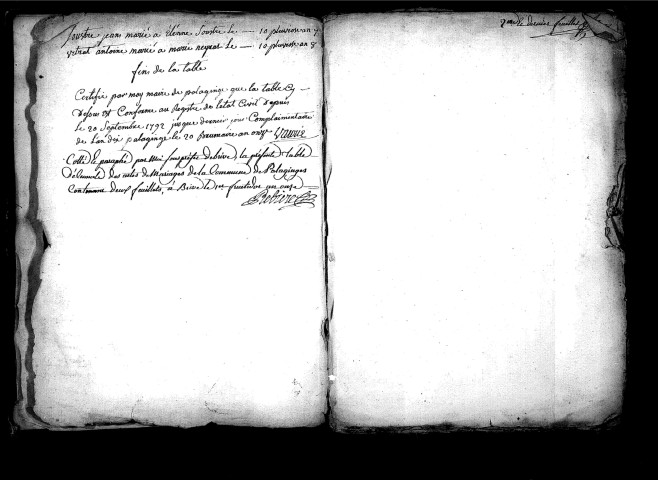 Soustre jeans marié a Etienne Soustre le — 10 pluviose an 7
vetrat antoine marié a marie negrat le — 10 pluviose an 8
fins de la table
Certifié par moy maire de palaginge que la table Cy
depuis est Conforme au Registre de letat Civil depuis
le 20 Septembre 1792 jusque dernier jour Complaimentaire
de l'an dix palaginge le 20 Brumaire an onze
Cotté & paraphé par Moi Sous préfet de brive, la présente table
décennale des actes de Mariages de la Commune de Palaginges
Contenant deux feuillets, à Brive le 1er fructidor an onze
2me & dernier feuillet